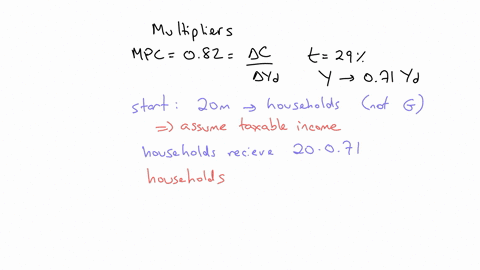 Multipliers
MPC = 0.82 = ΔC/ΔYd t = 29%
Y → 0.71 Yd
start: 20m → households (not G)
⇒ assume taxable income
households recieve 20·0.71
households